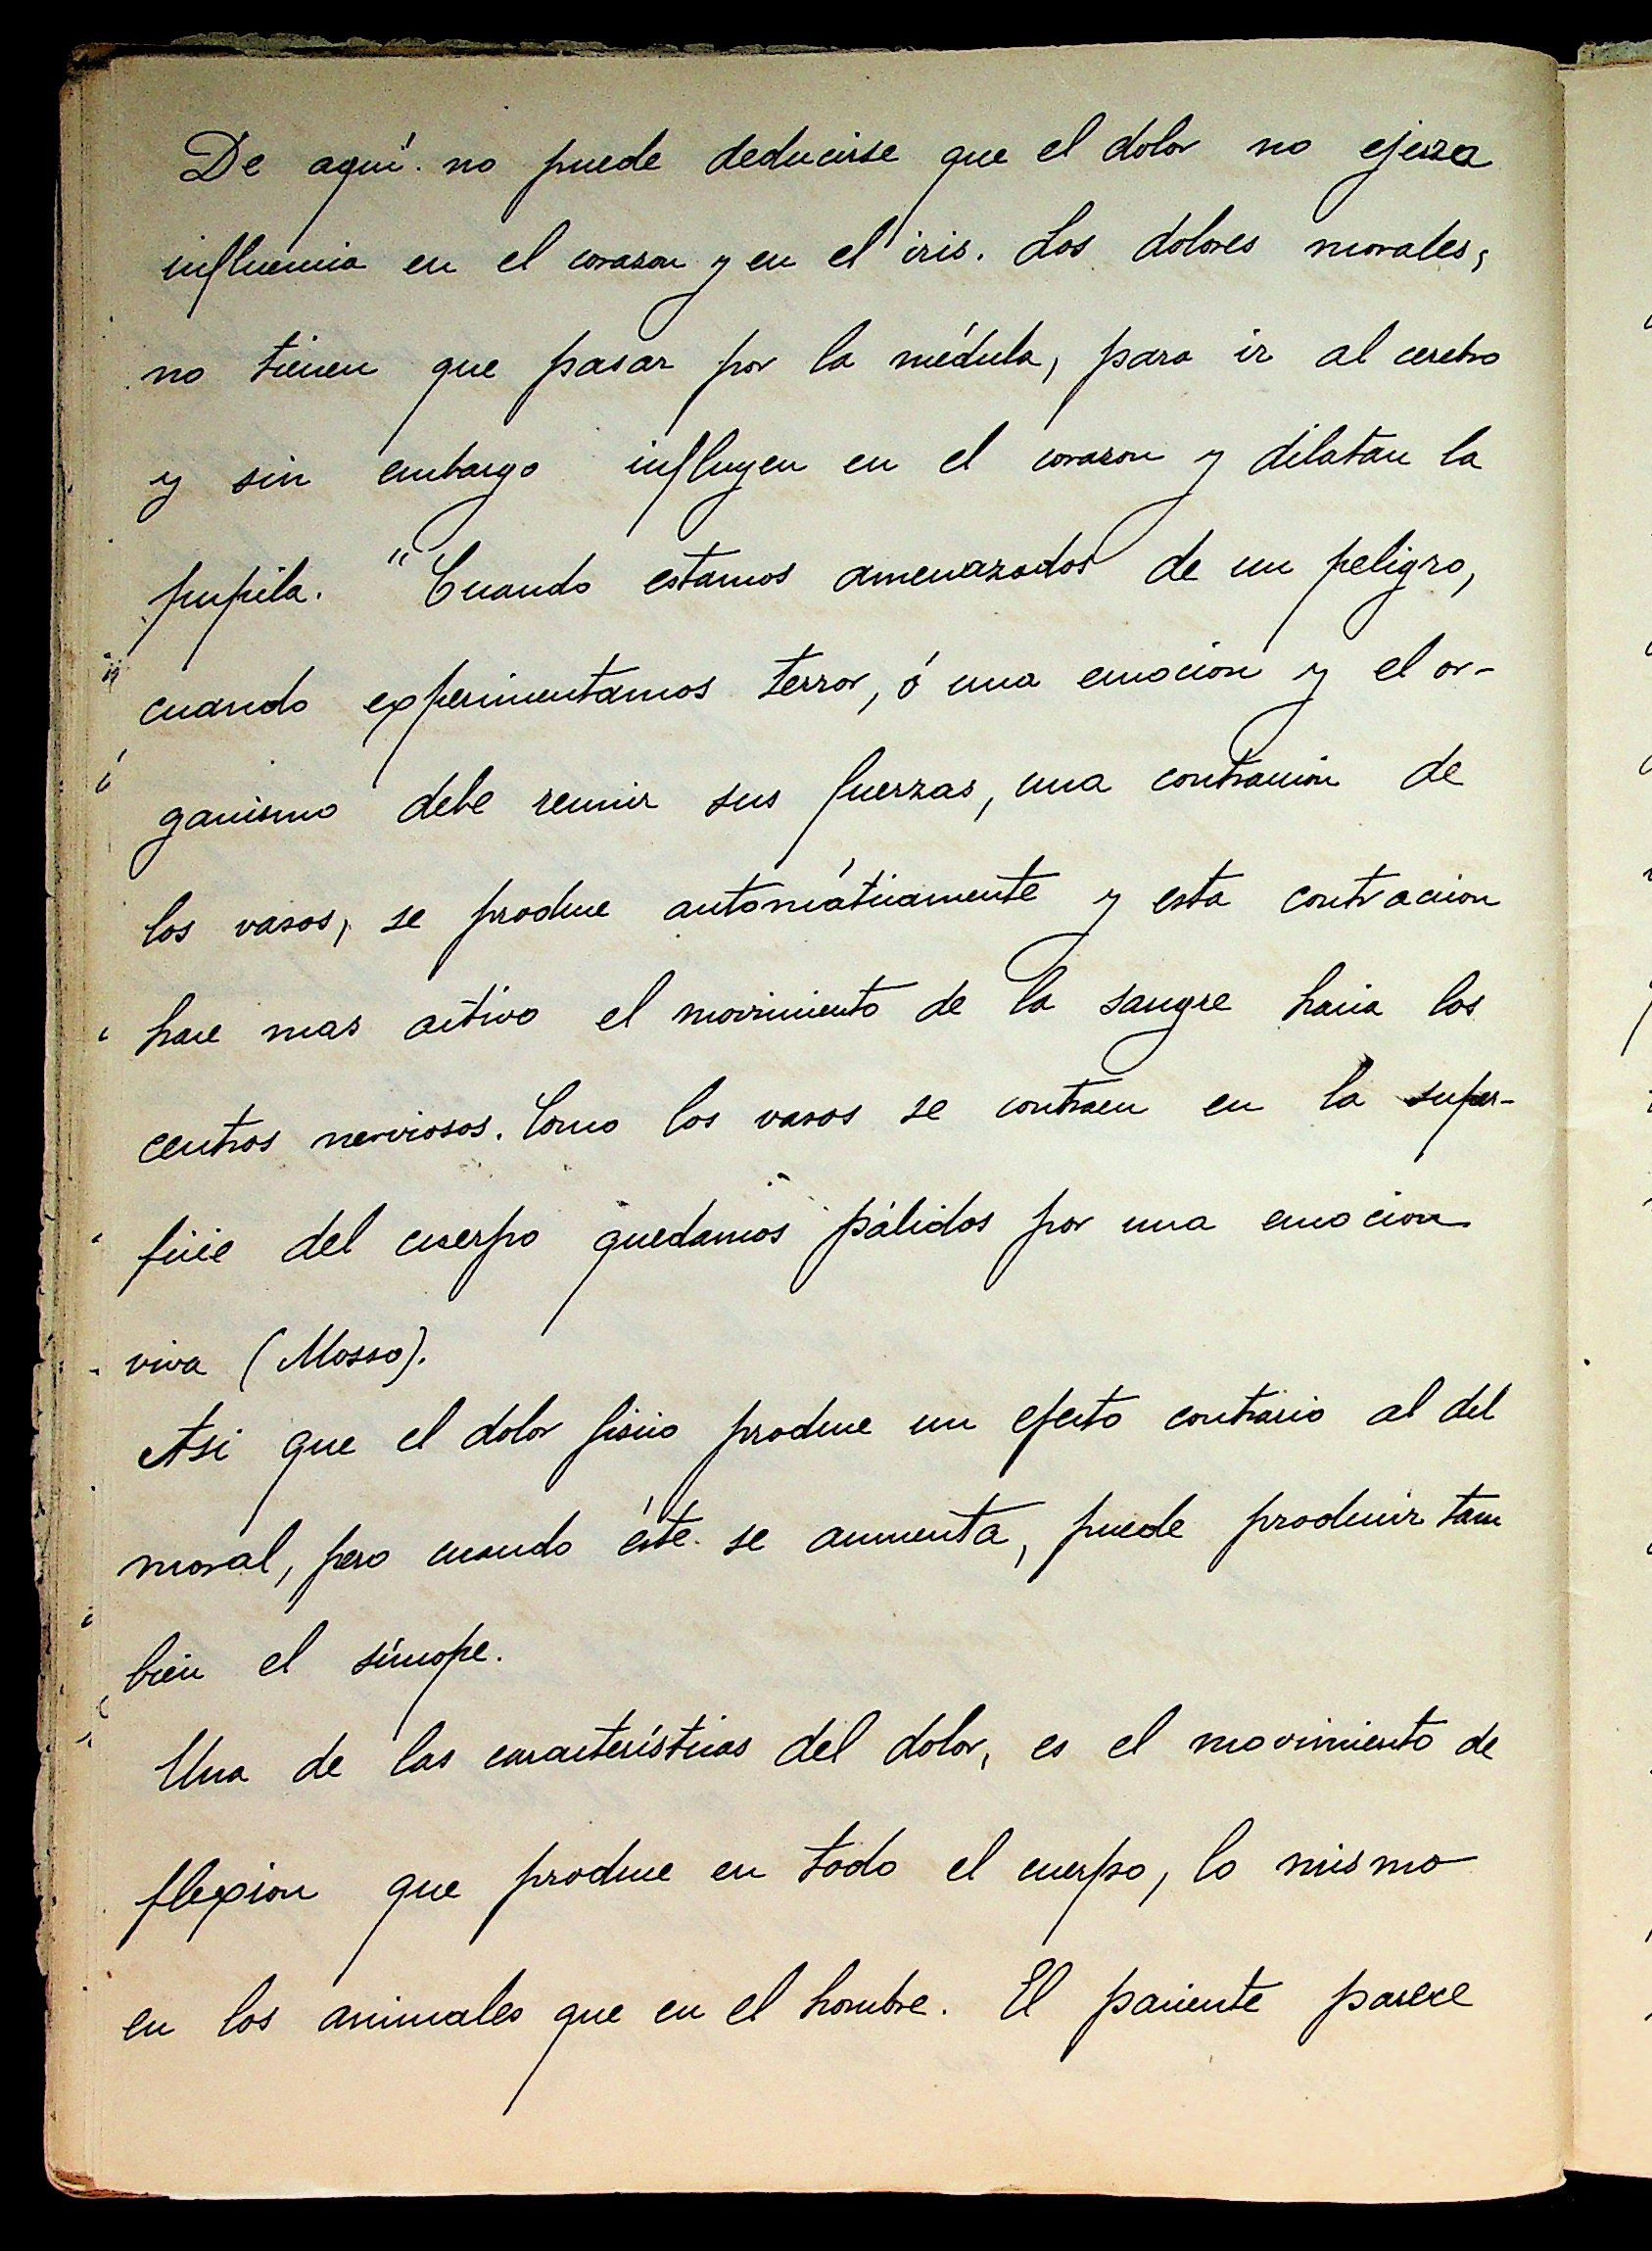 De aquí no puede deducirse que el dolor no ejerza
influencia en el corazon y en el iris. Los dolores morales,
no tienen que pasar por la médula, para ir al cerebro
y sin embargo influyen en el corazon y dilatan la
pupila. "Cuando estamos amenazados de un peligro,
cuando experimentamos terror, ó una emocion y el or-
ganismo debe reunir sus fuerzas, una contracción de
los vasos, se produce automáticamente y esta contraccion
hace mas activo el movimiento de la sangre hacia los
centros nerviosos. Como los vasos se contraen en la super-
ficie del cuerpo quedamos pálidos por una emocion
viva (Mosso).
Asi que el dolor fisico produce un efecto contrario al del
moral, pero cuando éste se aumenta, puede producir tam
bien el síncope.
Una de las características del dolor, es el movimiento de
flexion que produce en todo el cuerpo, lo mismo
en los animales que en el hombre. El paciente parece